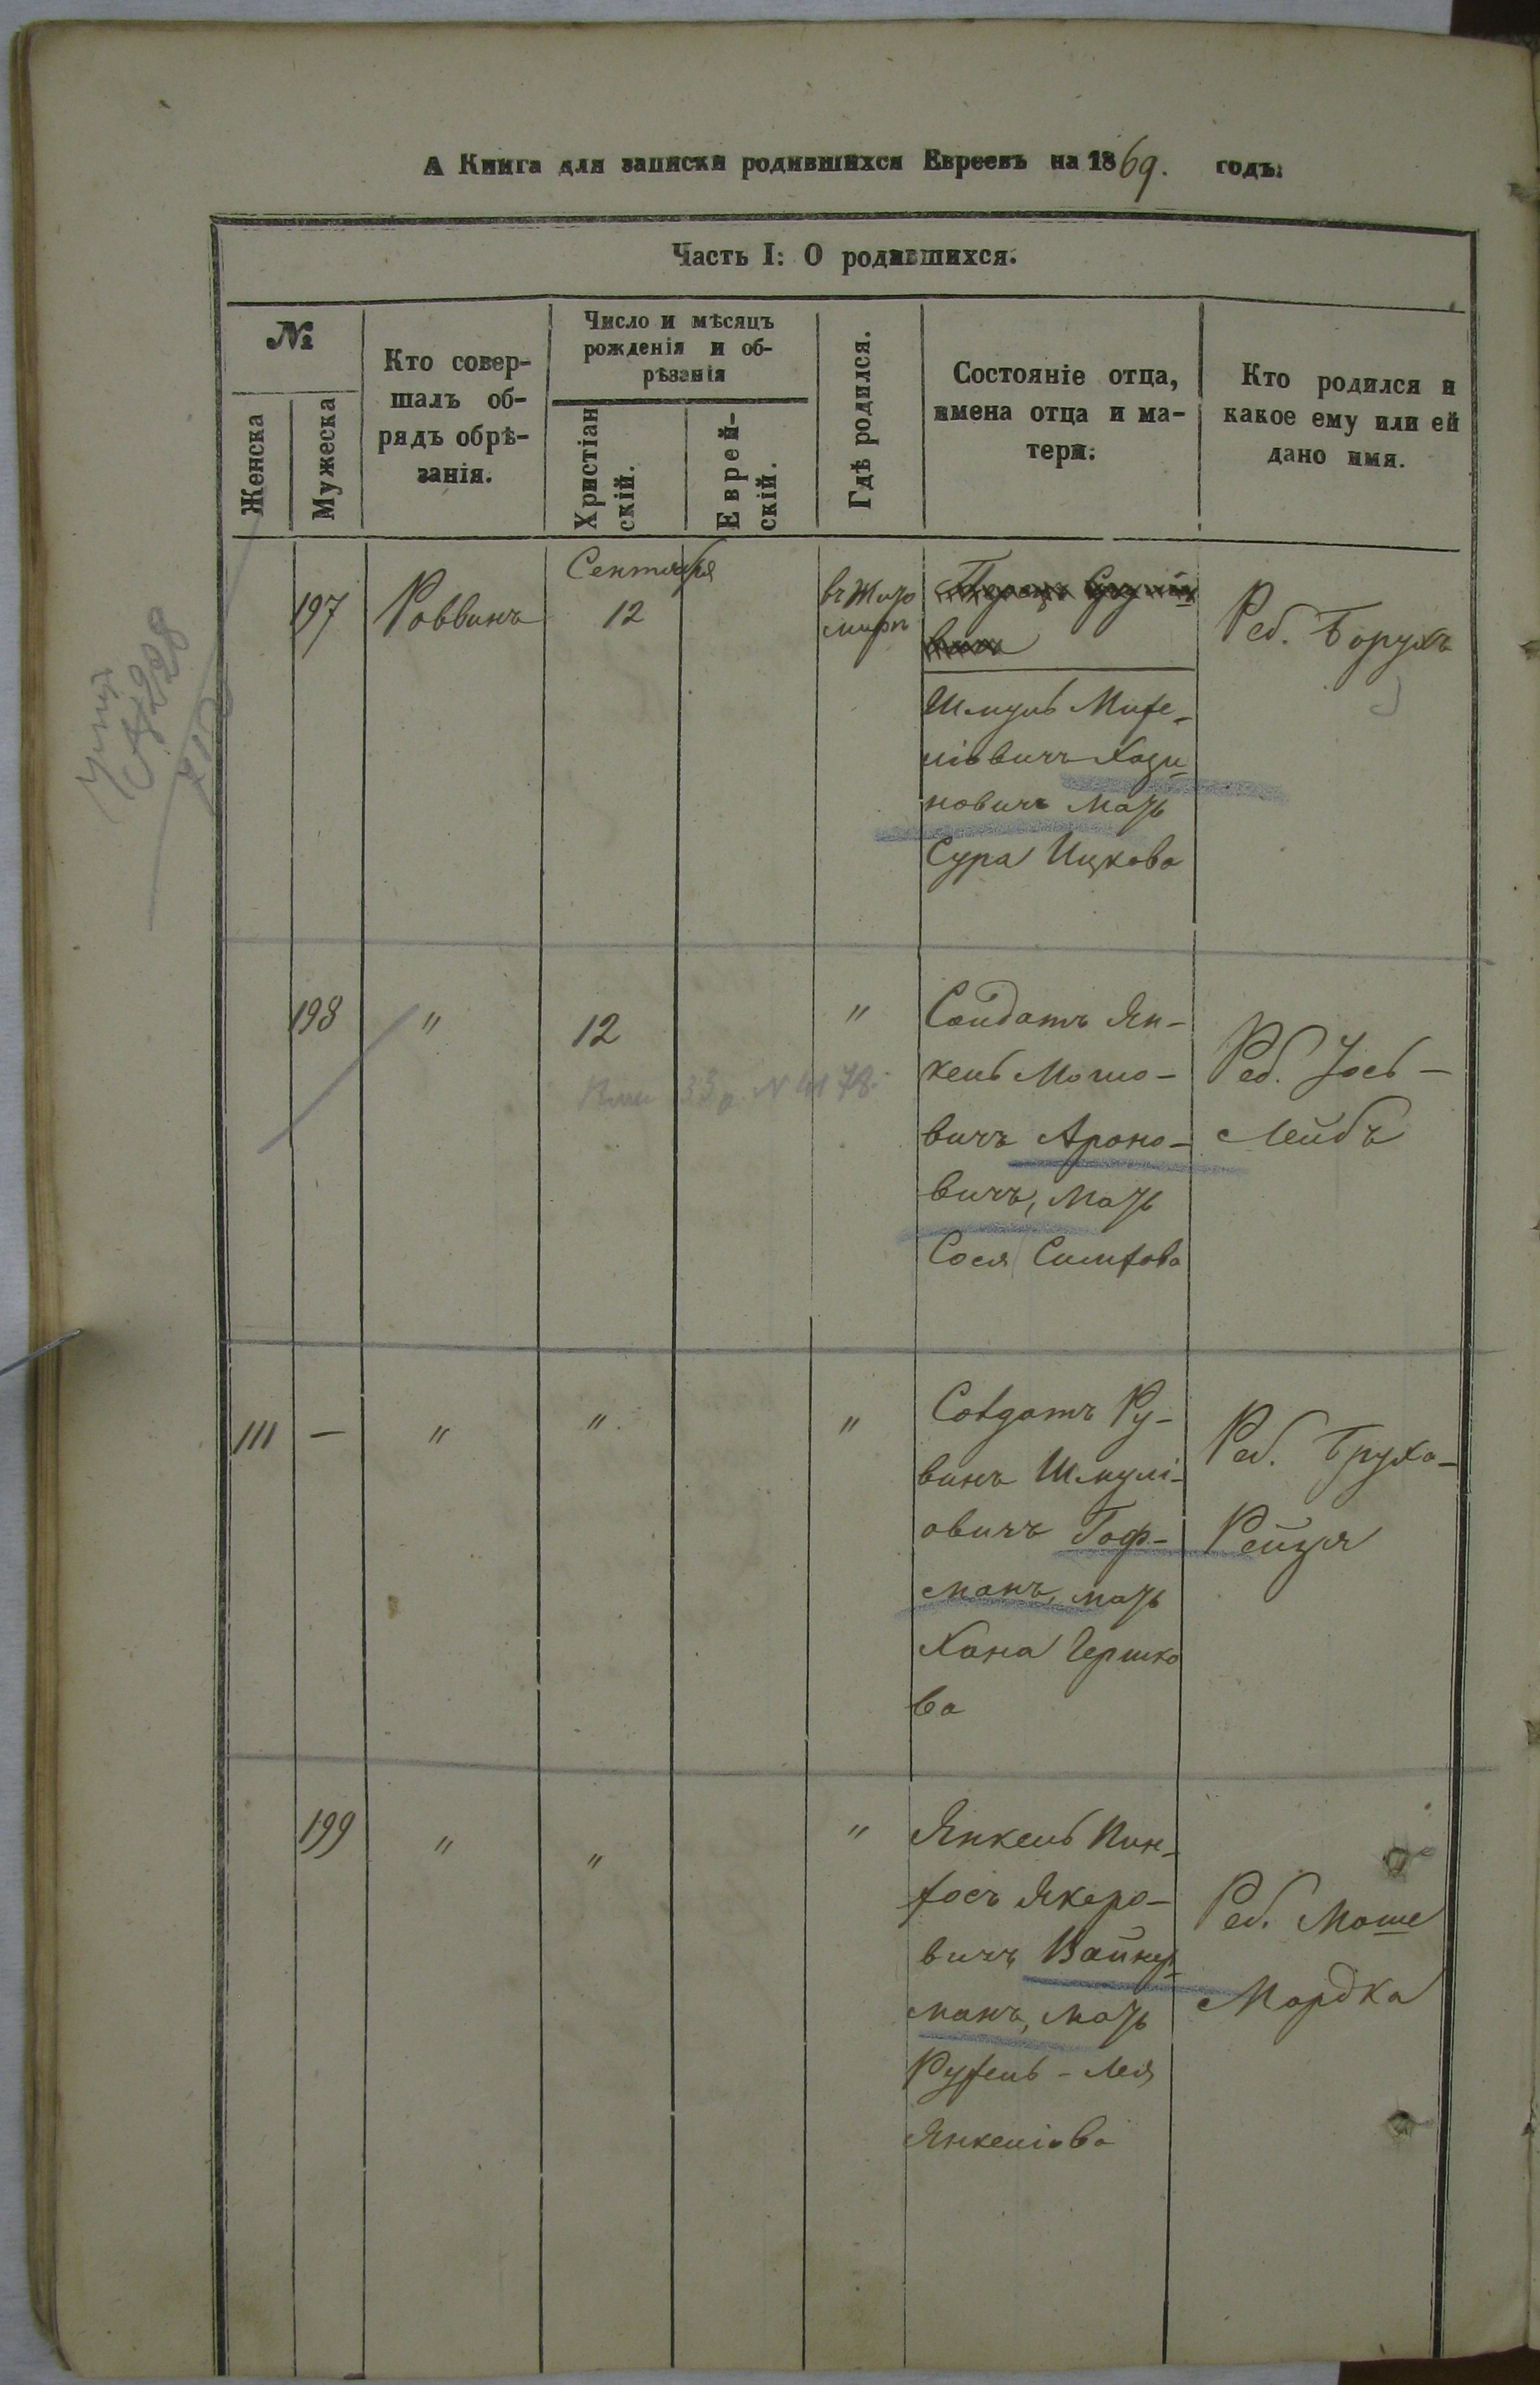 А Книга для записки родившихся Евреевъ на 1869. годъ:
Часть I: О родившихся.
№
Женска
Мужеска
Кто совер-
шалъ об-
рядъ обрѣ-
занія.
Число и мѣсяцъ
рожденія и об-
рѣзанія
Христіан
скій.
Еврей-
скій.
Гдѣ родился.
Состояніе отца,
имена отца и ма-
тери:
Кто родился и
какое ему или ей
дано имя.
197
Раввинъ
Сентября
12
въ Жито
мирѣ
Шмуль Михе-
ліовичъ Хази
новичъ мать
Сура Ицкова
Реб. Борухъ
198
"
12
"
Солдатъ Ян-
кель Мошо-
вичъАроно-
вичъ, мать
Сося Симхова
Реб. Іось-
Лейбъ
111
—
"
"
"
Солдатъ Ру-
винъ Шмулі-
овичъ Гоф-
манъ, мать
Хана Гершко
ва
Реб. Бруха-
Рейзя
199
"
"
"
Янкель Пин-
хосъ Якеро-
вичъ Вайну
манъ, мать
Рухель-Лея
Янкеліова
Реб. Моше
Мордка